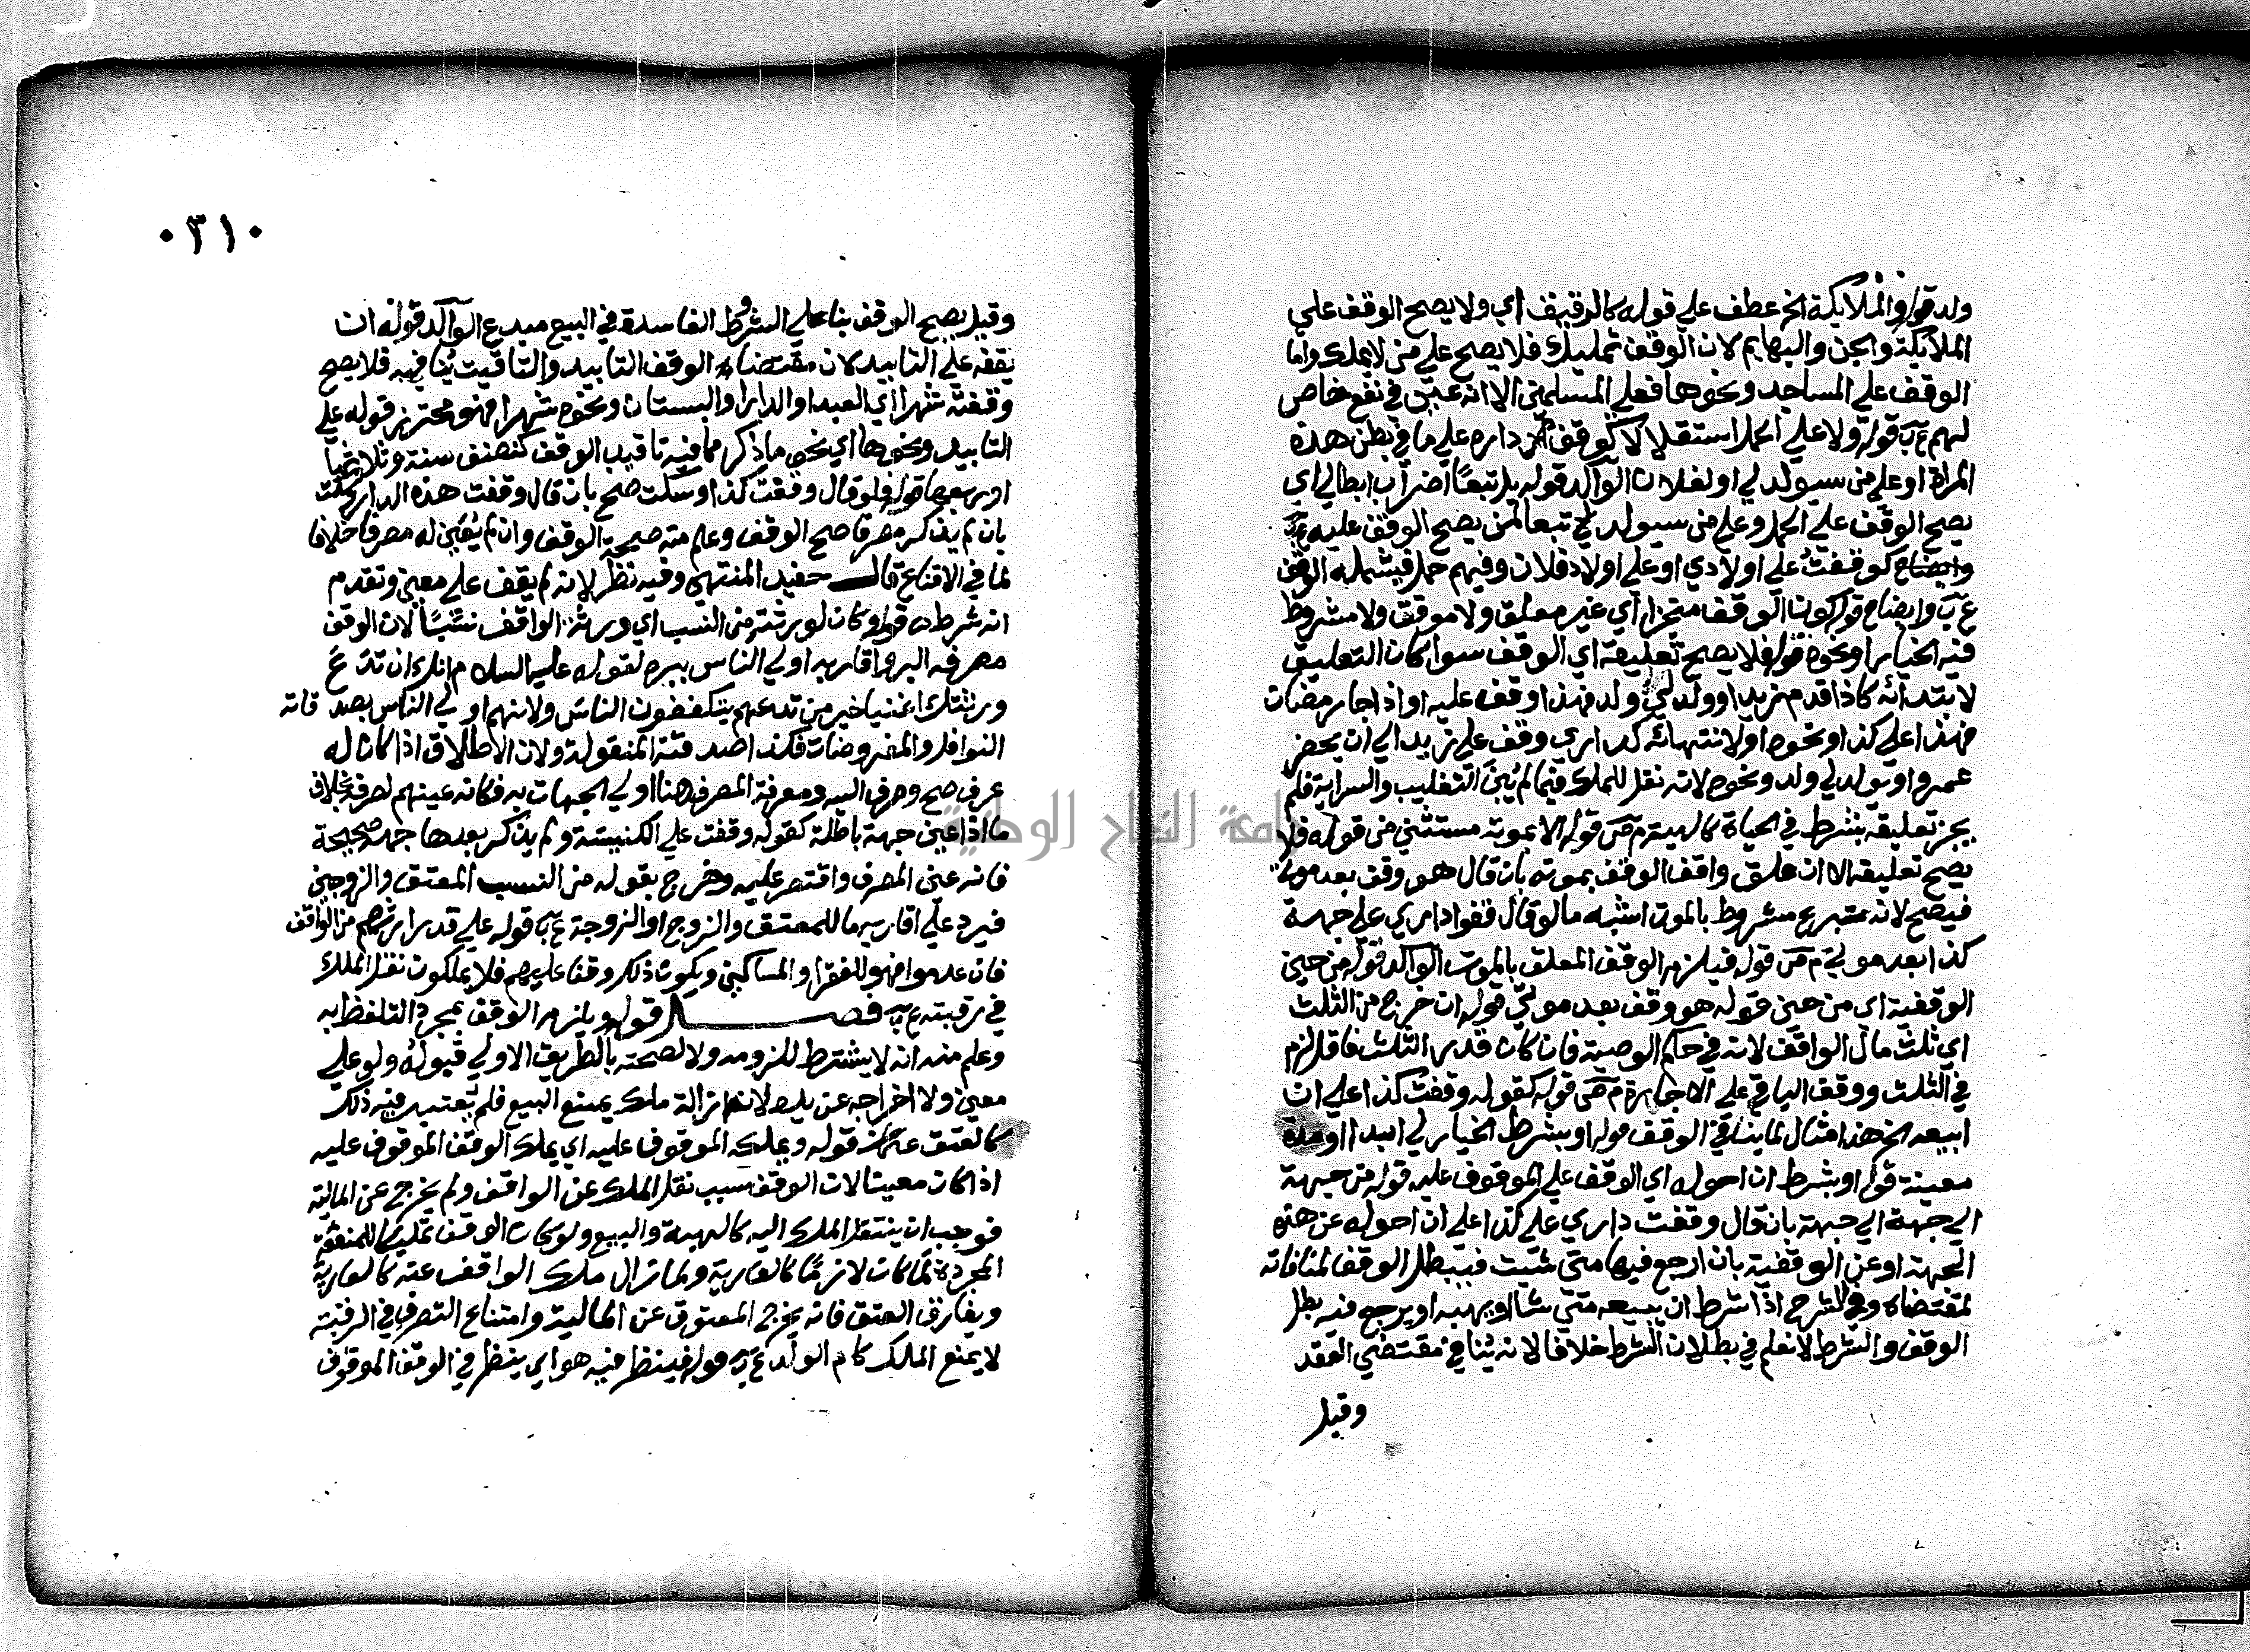 ولد قوله والملائكة الخ عطف علي قوله كالرقيق اي ولا يصح الوقف علي
الملائكة والجن والبهايم لان الوقف تمليك فلا يصح علي من لا يملك واما
الوقف علي المساجد ونحوها فعلي المسلمين الا انه عين في نفع خاص
لهم ع ب قوله ولا علي الحمل استقلالا كوقف داره علي ما في بطن هذه
المراة او علي من سيولد لي او لفلان الوالد قوله بل تبعا اضراب ابطالي اي
يصح الوقف علي الحمل وعلي من سيولد تبعا لمن يصح الوقف عليه
كوقفت علي اولادي او علي اولاد فلان وفيهم حمل فيشمله الوقف
ع ب وايضاح قوله كون الوقف منجزا اي غير معلق ولا موقت ولا مشروط
فيه الخيار او نحوه قوله فلا يصح تعليقه اي الوقف سوا كان التعليق
لابتدائه كاذا قدم زيد او ولد لي ولد فهذا وقف عليه او اذا جا رمضان
فهذا علي كذا ونحوه او لانتهائه كداري وقف علي زيد الي ان يحضر
عمرو او يولد لي ولد ونحوه لانه نقل للملك فيما لم يبن التغليب والسراية فلم
يجز تعليقه بشرط في الحياة كالهبة م ص قوله الا بموته مستثني من قوله فلا
يصح تعليقه الا ان علق واقف الوقف بموته بان قال هو وقف بعد موتي
فيصح لانه تبرع مشروط بالموت اشبه ما لو قال قفوا داري علي جهة
كذا بعد موتي م ص قوله فيلزم الوقف المعلق بالموت الوالد قوله من حين
الوقفية اي من حين قوله هو وقف بعد موتي قوله ان خرج من الثلث
اي ثلث مال الواقف لانه في حكم الوصية فان كان قدر الثلث فاقل لزم
في الثلث ووقف الباقي علي الاجازة م ص قوله كقوله وقفت كذا علي ان
ابيعه الخ هذا مثال لما ينافي الوقف قوله او بشرط الخيار لي ابدا او مدة
معينة قوله او بشرط ان احوله اي الوقف علي الموقوف عليه قوله من جهة
الي جهة الي جهة بان قال وقفت داري علي كذا علي ان احوله عن هذه
الجهة او عن الوقفية بان ارجع فيها متي شئت فيبطل الوقف لمنافاته
لمقتضاه وفي الشرح اذا شرط ان يبيعه متي شا او يهبه او يرجع فيه بطل
الوقف والشرط لا نعلم في بطلان الشرط خلافا لانه ينافي مقتضي العقد
وقيل
٠٣١٠
وقيل يصح الوقف بنا علي الشروط الفاسدة في البيع مبدع الوالد قوله ان
يقفه علي التابيد لان مقتضاه الوقف التابيد والتاقيت ينافيه فلا يصح
وقفته شهرا اي العبد او الدار او البستان ونحوه شهرا فهو محترز قوله علي
التابيد ونحوها اي نحو ما ذكر مما فيه تاقيت الوقف كنصف سنة وثلاثها
او ربعها قوله فلو قال وقفت كذا وسكت صح بان قال وقفت هذه الدار وسكت
بان لم يذكر مصرفا صح الوقف وعلم منه صحة الوقف وان لم يعين له مصرفا خلافا
لما في الاقناع قال حفيد المنتهي وفيه نظر لانه لم يقف علي معين وتقدم
انه شرط م ص قوله وكان لورثته من النسب اي ورثة الواقف نسبا لان الوقف
مصرفه البر واقاربه اولي الناس ببره لقوله عليه السلام انك ان تدع
ورثتك اغنيا خير من تدعهم يتكففون الناس ولانهم اولي الناس بصدقاته
النوافل والمفروضات فكذا صدقته المنقولة ولان الاطلاق اذا كان له
عرف صح وصرف اليه ومعرفة المصرف هنا اولي الجهات به فكانه عينهم لصرفه بخلاف
ما اذا عين جهة باطلة كقوله وقفت علي الكنيسة ولم يذكر بعدها جهة صحيحة
فانه عين المصرف واقتصر عليه وخرج بقوله من النسب المعتق والزوجين
فيرد علي اقاربه ما للمعتق والزوج او الزوجة ع ب قوله علي قدر ارثهم من الواقف
فان عدموا فهو للفقرا والمساكين ويكون ذلك وقفا عليهم فلا يملكون نقل الملك
في رقبته ع ب فصل قوله ويلزم الوقف بمجرد التلفظ به
وعلم منه انه لا يشترط للزومه ولا لصحته بالطريق الاولي قبوله ولو علي
معين ولا اخراجه عن يده لانه ازالة ملك يمنع البيع فلم يعتبر فيه ذلك
كالعتق قوله ويملك الموقوف عليه اي يملك الوقف الموقوف عليه
اذا كان معينا لان الوقف سبب نقل الملك عن الواقف ولم يخرج عن المالية
فوجب ان ينتقل الملك اليه كالهبة والبيع ولو كان الوقف تمليكا للمنفعة
المجردة لما كان لازما كالعارية ولما زال ملك الواقف عنه كالعارية
ويفارق العتق فانه يخرج المعتوق عن المالية وامتناع التصرف في الرقبة
لا يمنع الملك كام الولد ع ب قوله فينظر فيه هو اي ينظر في الوقف الموقوف